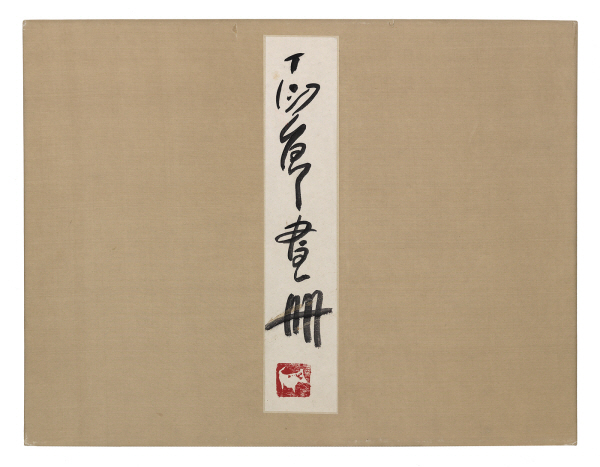 丁衍庸畫冊